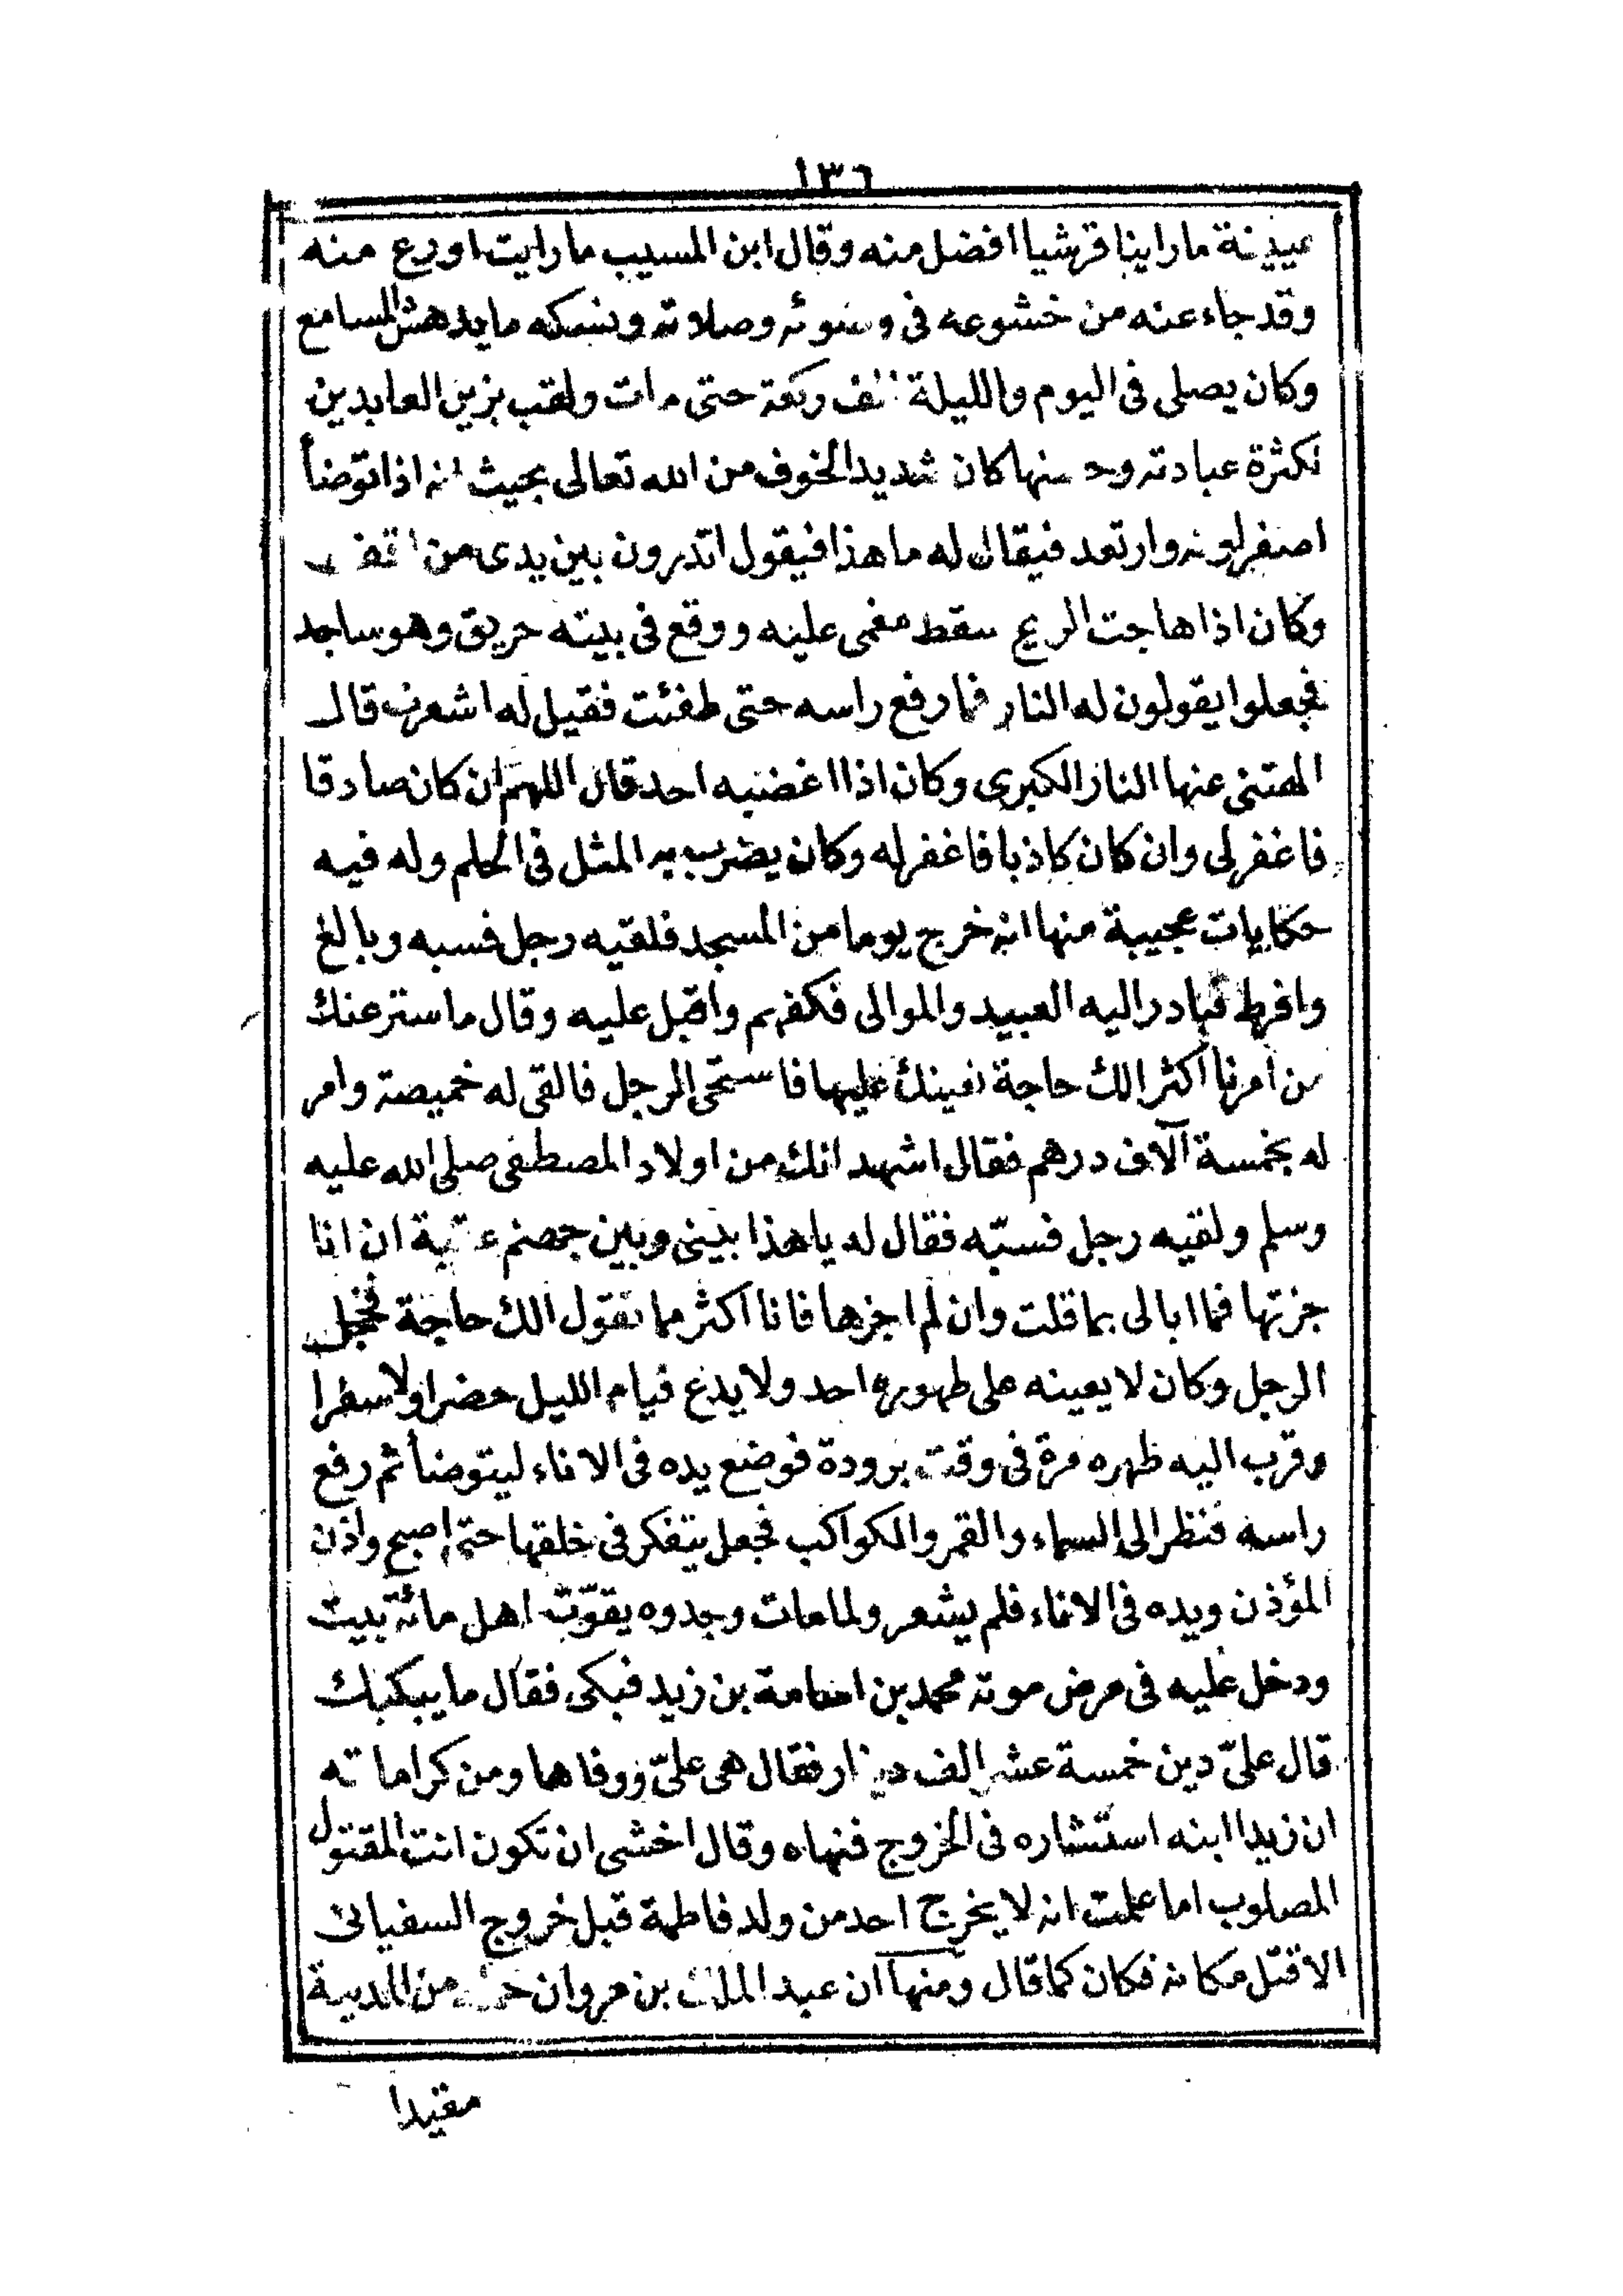 ١٣٦
عيينة ما راينا قرشيا افضل منه وقال ابن المسيب ما رايت اورع منه
وقد جاء عنه من خشوعه فى وضوئه وصلاته ونسكه ما يدهش السامع
وكان يصلى فى اليوم والليلة الف ركعة حتى مات ولقب بزين العابدين
لكثرة عبادته وحسنها كان شديد الخوف من الله تعالى بحيث انه اذا توضأ
اصفر لونه وارتعد فيقال له ما هذا فيقول اتدرون بين يدى من اقف
وكان اذا هاجت الريح سقط مغمى عليه ووقع فى بيته حريق وهو ساجد
فجعلوا يقولون له النار فما رفع راسه حتى طفئت فقيل له اشعرت قال
الهتنى عنها النار الكبرى وكان اذا اغضبه احد قال اللهم ان كان صادقا
فاغفر لى وان كان كاذبا فاغفر له وكان يضرب به المثل فى الحلم وله فيه
حكايات عجيبة منها انه خرج يوما من المسجد فلقيه رجل فسبه وبالغ
وافرط فبادر اليه العبيد والموالى فكفهم واقبل عليه وقال ما ستر عنك
من امرنا اكثر الك حاجة نعينك عليها فاستحى الرجل فالقى له خميصة وامر
له بخمسة آلاف درهم فقال اشهد انك من اولاد المصطفى صلى الله عليه
وسلم ولقيه رجل فسبّه فقال له يا هذا بينى وبين جهنم عقبة ان انا
جزتها فما ابالى بما قلت وان لم اجزها فانا اكثر مما تقول الك حاجة فخجل
الرجل وكان لا يعينه على طهوره احد ولا يدع قيام الليل حضرا ولا سفرا
وقرب اليه طهره مرة فى وقت برودة فوضع يده فى الاناء ليتوضأ ثم رفع
راسه فنظر الى السماء والقمر والكواكب فجعل يتفكر فى خلقها حتى اصبح واذن
المؤذن ويده فى الاناء فلم يشعر ولما مات وجدوه يقوّت اهل مائة بيت
ودخل عليه فى مرض موته محمد بن اسامة بن زيد فبكى فقال ما يبكيك
قال علىّ دين خمسة عشر الف دينار فقال هى علىّ ووفاها ومن كراماته
ان زيدا ابنه استشاره فى الخروج فنهاه وقال اخشى ان تكون انت المقتول
المصلوب اما علمت انه لا يخرج احد من ولد فاطمة قبل خروج السفيانى
الا قتل مكانه فكان كما قال ومنها ان عبد الملك بن مروان حمله من المدينة
مقيدا